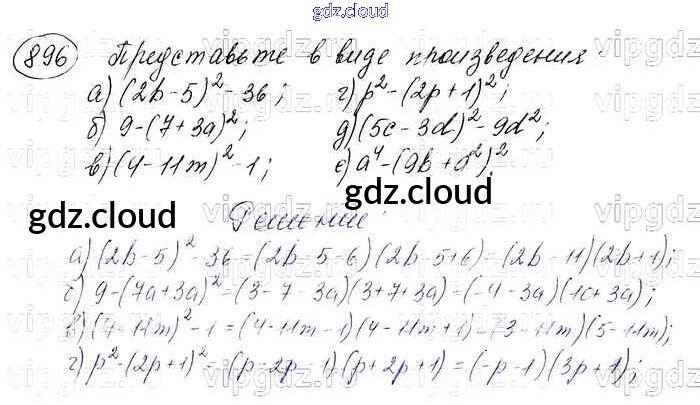 gdz.cloud
896 Представьте в виде произведения:
а) (2b-5)² - 36; г) p² - (2p+1)²;
б) 9-(7+3a)²; д) (5c-3d)² - 9d²;
в) (4-11m)² - 1; е) a⁴ - (9b+a²)².
gdz.cloud gdz.cloud
Решение:
а) (2b-5)² - 36 = (2b-5-6)(2b-5+6) = (2b-11)(2b+1);
б) 9-(7a+3a)² = (3-7-3a)(3+7+3a) = (-4-3a)(10+3a);
в) (4-11m)² - 1 = (4-11m-1)(4-11m+1) = (3-11m)(5-11m);
г) p² - (2p+1)² = (p-2p-1)(p+2p+1) = (-p-1)(3p+1);